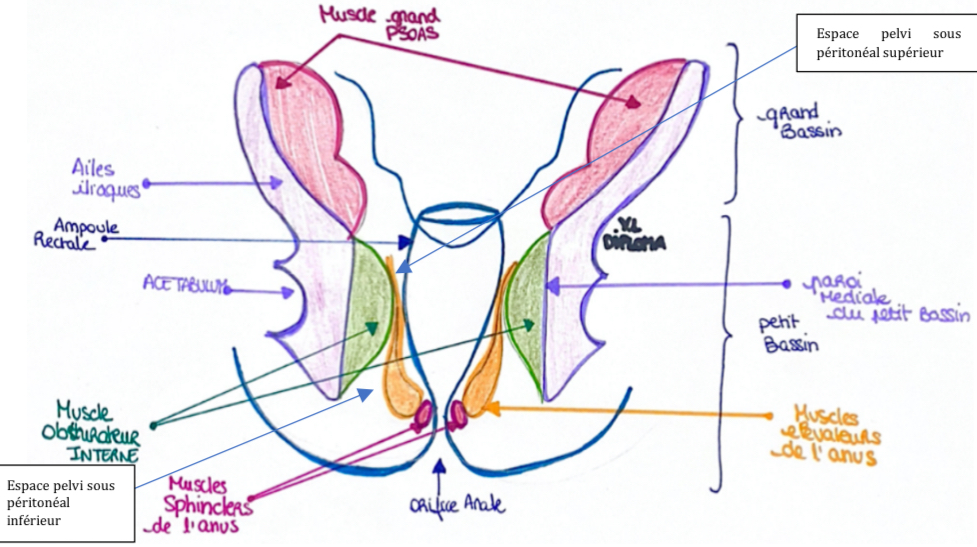 Muscle grand
PSOAS
Espace pelvi sous
péritonéal supérieur
grand
Bassin
Ailes
iliaques
Ampoule
Rectale
V.L
DIPLOMA
ACETABULUM
paroi
Mediale
du petit Bassin
petit
Bassin
Muscle
Obturateur
INTERNE
Muscles
elevateurs
de l'anus
Espace pelvi sous
péritonéal
inférieur
Muscles
Sphincters
de l'anus
Orifice Anale